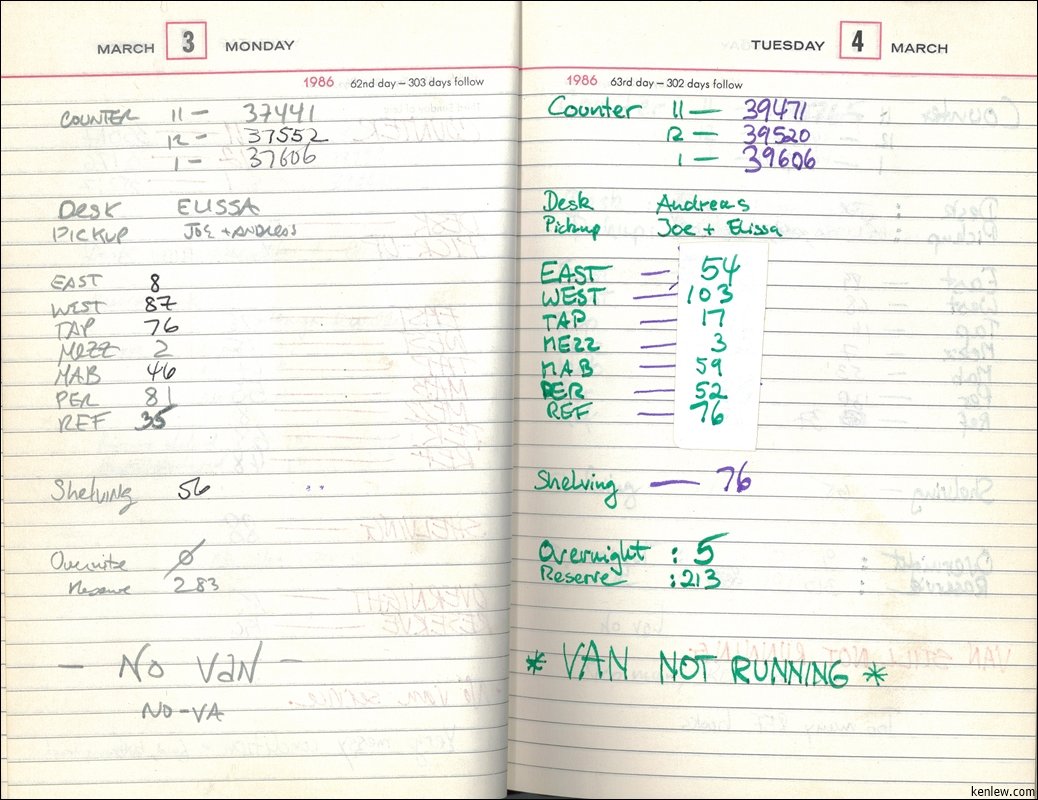 MARCH 3 MONDAY
1986 62nd day – 303 days follow
COUNTER 11 – 37441
12 – 37552
1 – 37606
DESK ELISSA
PICKUP JOE + ANDREAS
EAST 8
WEST 87
TAP 76
MEZZ 2
MAB 46
PER 81
REF 35
Shelving 56
Overnite Ø
Reserve 283
— No Van —
NO-VA
TUESDAY 4 MARCH
1986 63rd day – 302 days follow
Counter 11 — 39471
12 — 39520
1 — 39606
Desk Andreas
Pickup Joe + Elissa
EAST — 54
WEST — 103
TAP — 17
MEZZ — 3
MAB — 59
PER — 52
REF — 76
Shelving — 76
Overnight : 5
Reserve : 213
* VAN NOT RUNNING *
kenlew.com